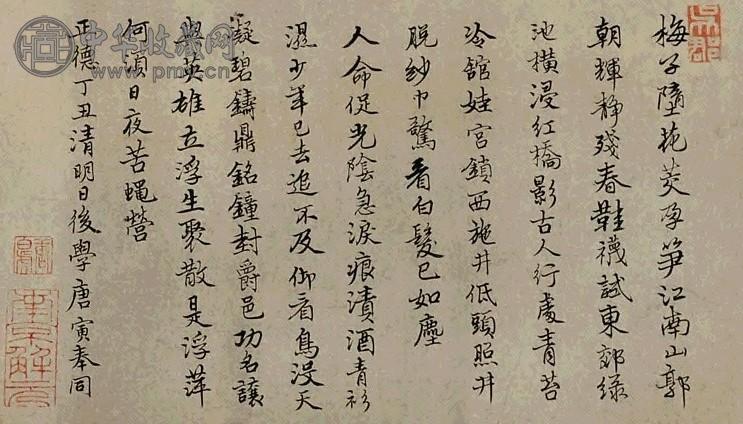 吳郡
梅子墮花茭孕笋江南山郭
朝輝靜殘春鞋襪試東郊綠
池橫浸紅橋影古人行處青苔
冷館娃宮鎖西施井低頭照井
脫紗巾驚看白髮已如塵
人命促光陰急淚痕漬酒青衫
濕少年已去追不及仰看鳥沒天
凝碧鑄鼎銘鐘封爵邑功名讓
與英雄立浮生聚散是浮萍
何須日夜苦蝇營
正德丁丑清明日後學唐寅奉同
南京解元
中华收藏网